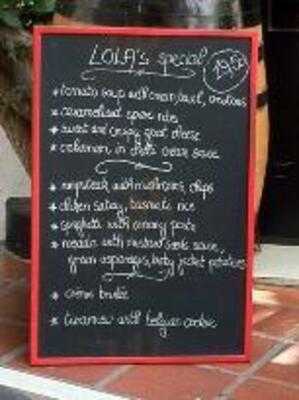 LOLA's special 19,50
* tomato soup with cream, basil, croutons
* caramelised spare ribs
* sweet and crispy goat cheese
* calamari in chilli cream sauce
* rumpsteak with mushrooms, chips
* chicken satay, basmati rice
* spaghetti with canary pesto
* with mustard sauce,
green asparagus, baby jacket potatoes
* crème brulée
* tiramisu with belgian cookie